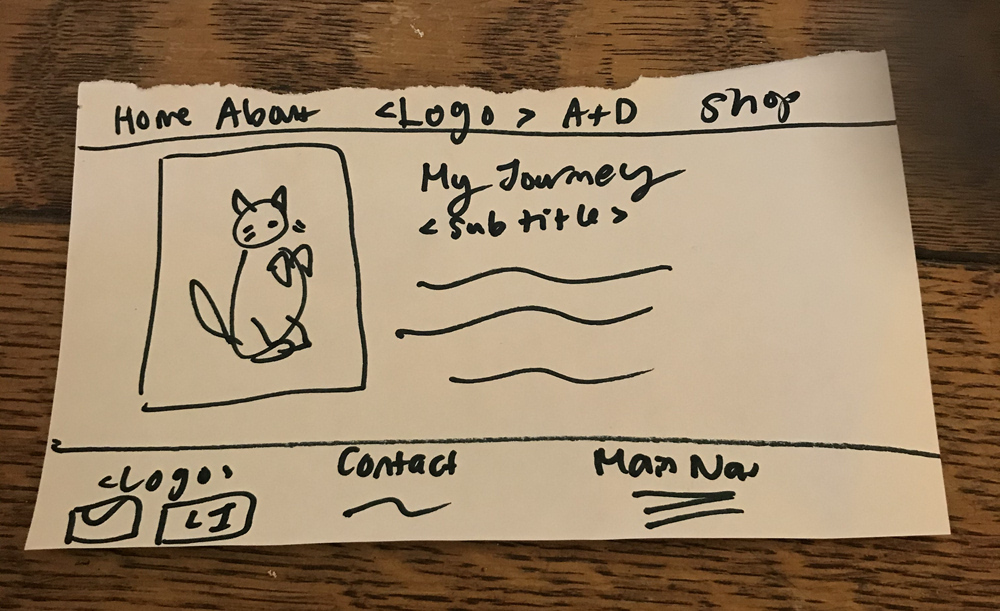 Home About <Logo> A+D Shop
My Journey
<subtitle>
<Logo>
LI
Contact
Main Nav